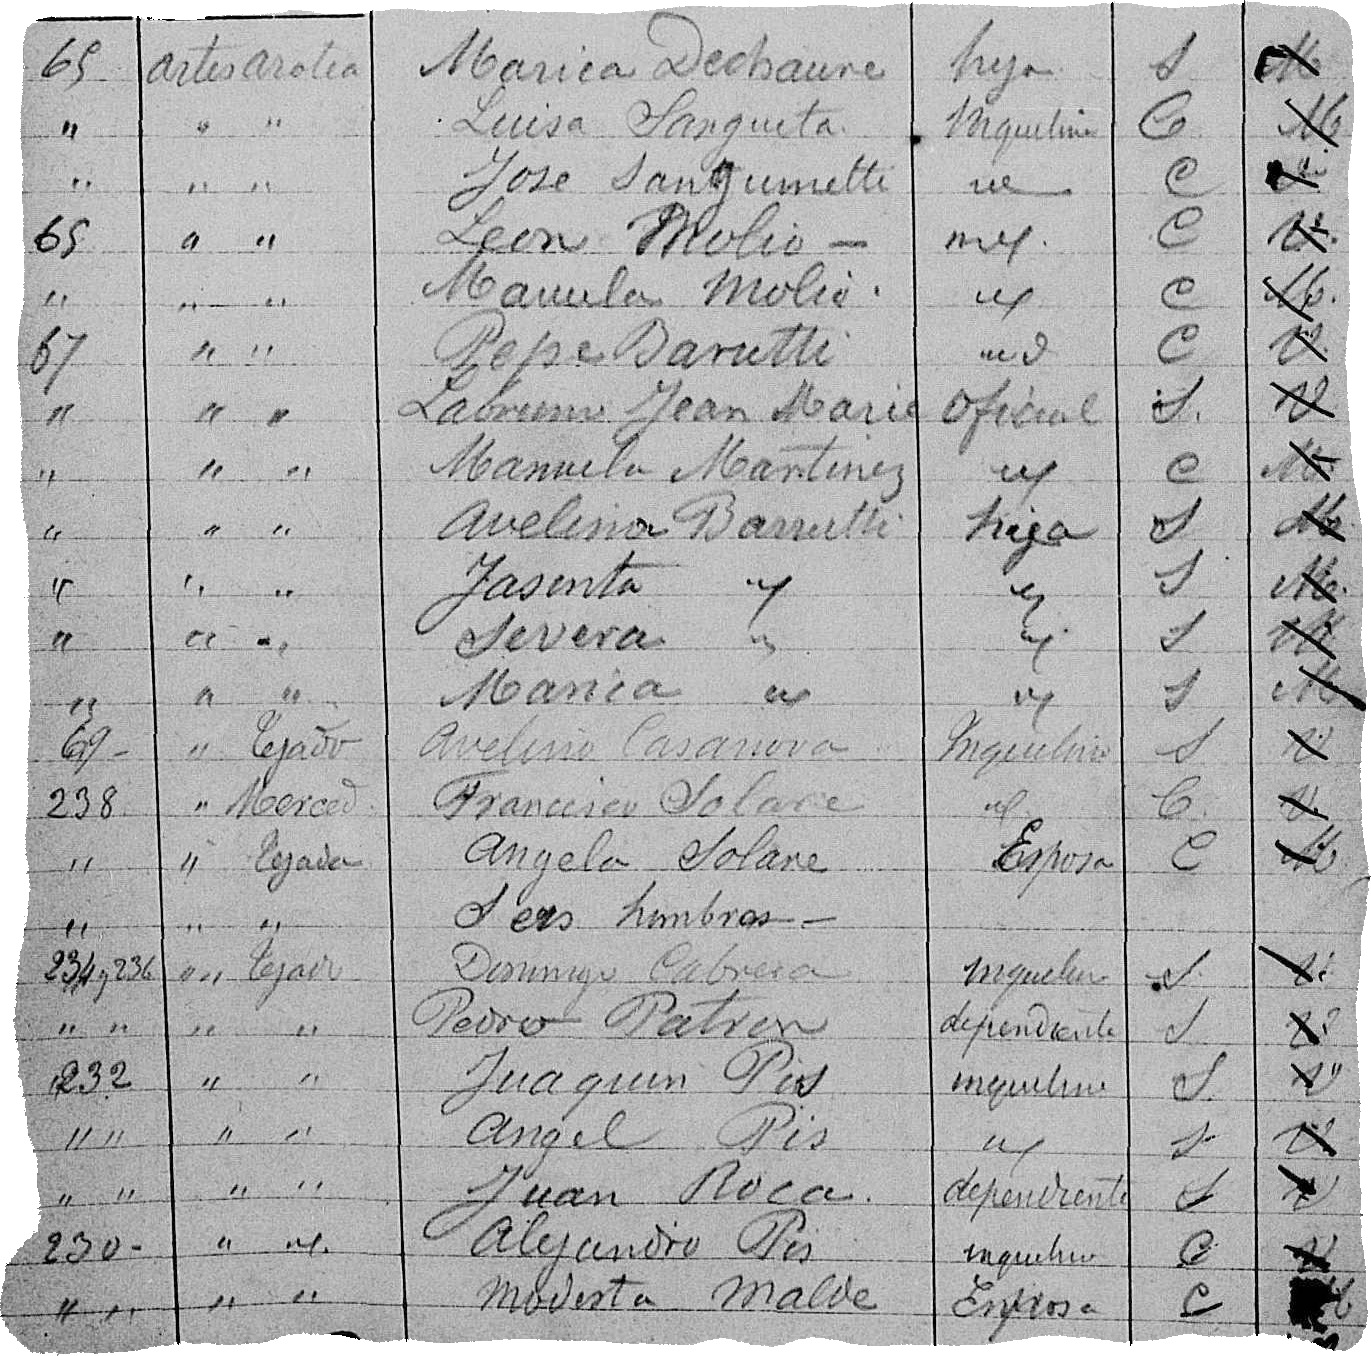 65 Artes azotea Marica Dechaure hija S M
" " " Luisa Sangueta Inquelina C M
" " " Jose Sanguinetti C
65 " " Leon Molio — C V.
" " " Manuela Molio. C M.
67 " " Pepe Barutti C V
" " " Jean Marie Oficial S. V
" " " Manuela Martinez C M
" " " Avelina Barrutti hija S M
" " " Jasinta S M.
" " " Severa S M
" " " Marica S M
69 - " Tejado Avelino Casanova Inquelino S V
238 " Merced Francisco Solare C. V
" " Tejada Angela Solare Esposa C M
" " " Seis hombres —
234 y 236 " " Tejado Domingo Cabrera inquelino S. V
" " " " Pedro Patron dependiente S V
232 " " Juaquin Pis inquelino S. V
" " " " Angel Pis S V
" " " " Juan Roca. dependiente S V
230 - " Alejandro Pis inquelino C V
" " " " Modesta Malde Esposa C